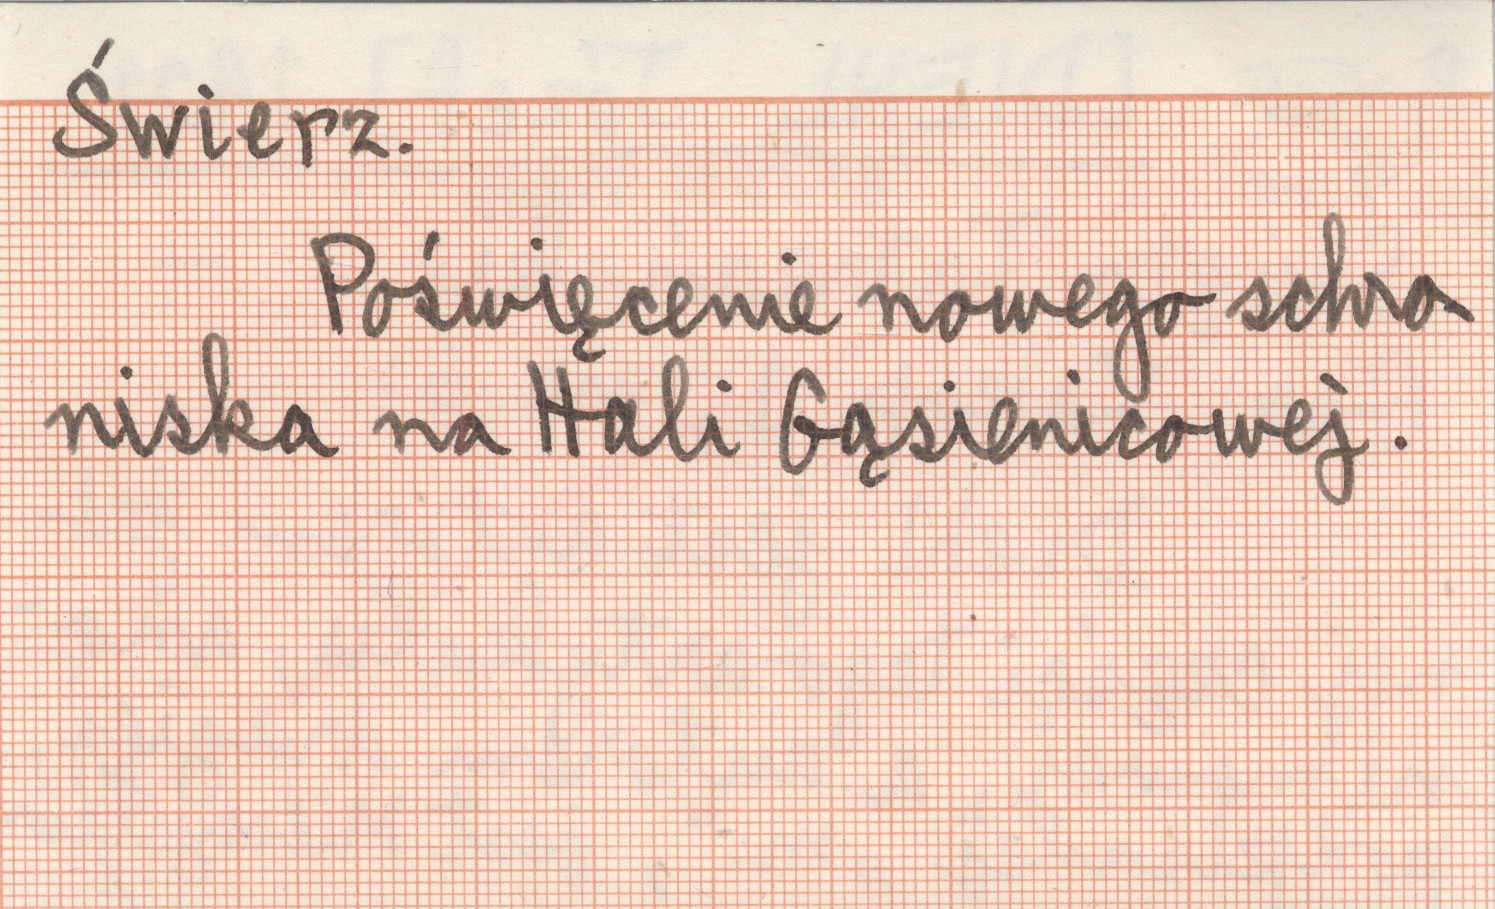 Świerz.
Poświęcenie nowego schro
niska na Hali Gąsienicowej.